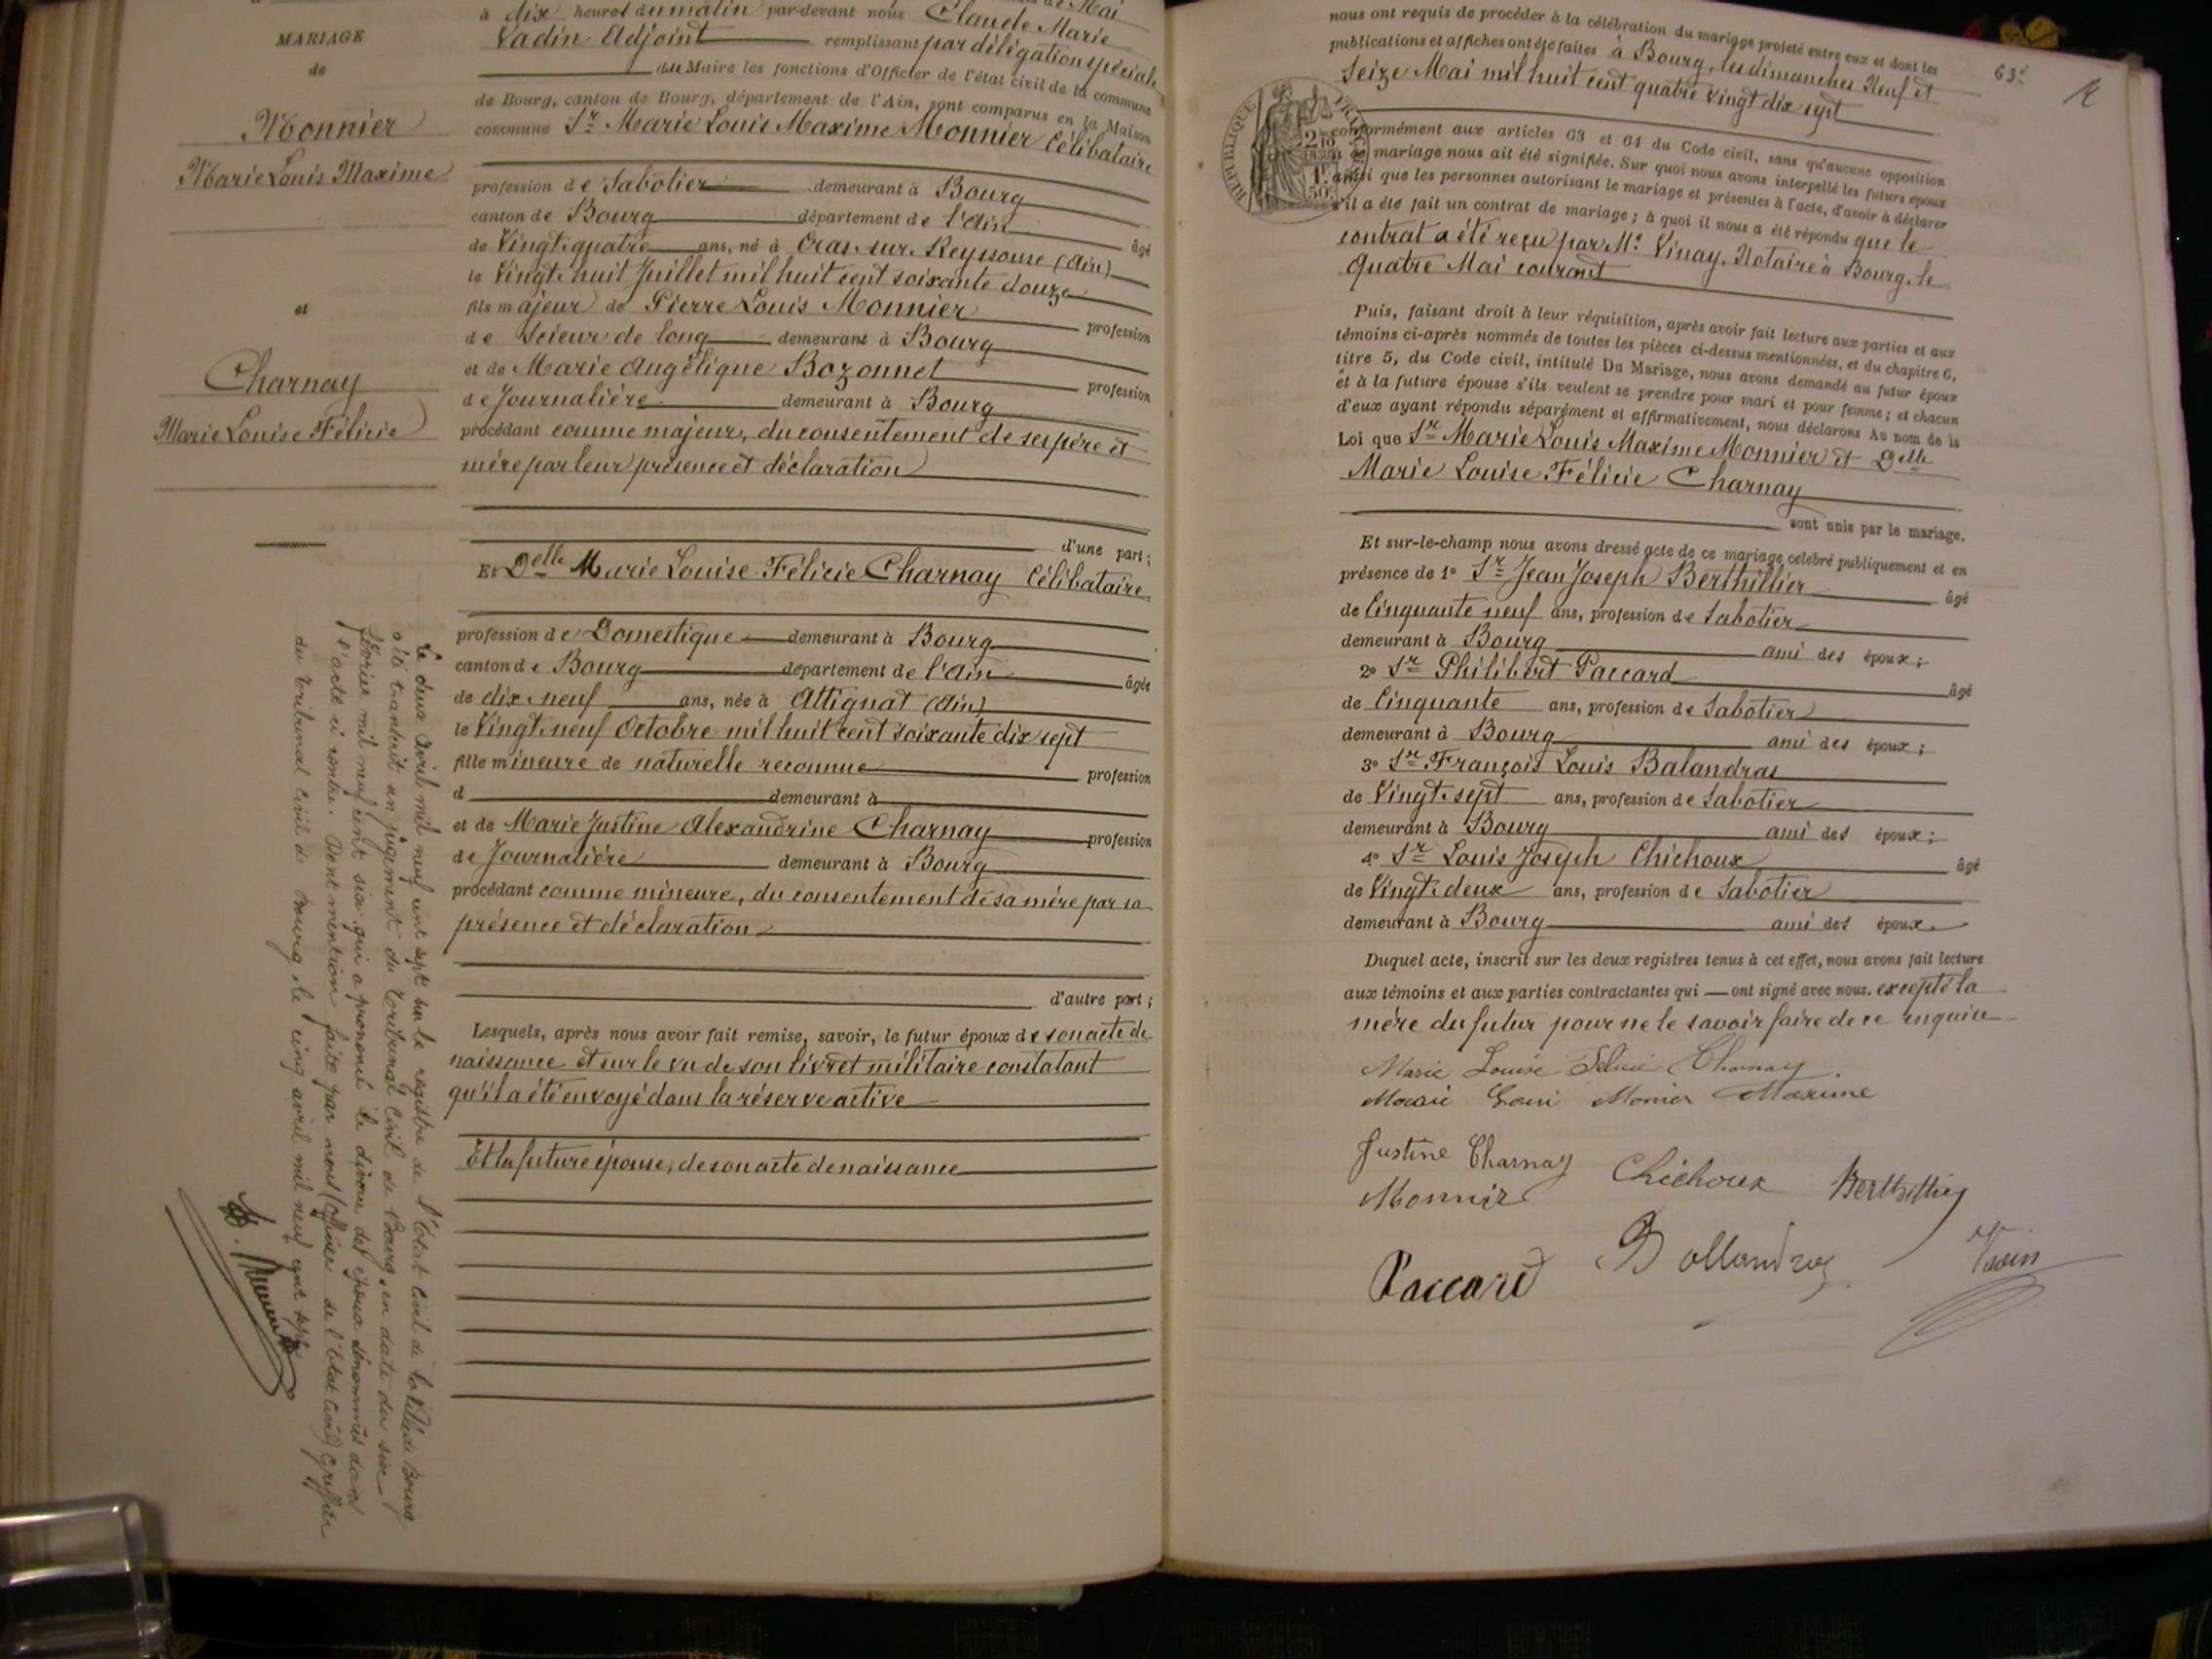 MARIAGE
de
Monnier
Marie Louis Maxime
et
Charnay
Marie Louise Félicie
de Mai
à dix heures du matin par-devant nous Claude Marie
Vadin Adjoint remplissant par délégation spéciale
du Maire les fonctions d'Officier de l'état civil de la commune
de Bourg, canton de Bourg, département de l'Ain, sont comparus en la Maison
commune Sr Marie Louis Maxime Monnier Célibataire
profession de Sabotier demeurant à Bourg
canton de Bourg département de l'Ain
âgé
de Vingt-quatre ans, né à Cras-sur-Reyssouse (Ain)
le Vingt-huit Juillet mil huit cent soixante douze
fils majeur de Pierre Louis Monnier
profession
de Scieur de long demeurant à Bourg
et de Marie Angélique Bozonnet
profession
de Journalière demeurant à Bourg
procédant comme majeur, du consentement de ses père et
mère par leur présence et déclaration
d'une part;
Et Delle Marie Louise Félicie Charnay Célibataire
profession de Domestique demeurant à Bourg
canton de Bourg département de l'Ain
âgée
de dix neuf ans, née à Attignat (Ain)
le Vingt-neuf Octobre mil huit cent soixante dix sept
fille mineure de naturelle reconnue
profession
d demeurant à
et de Marie Justine Alexandrine Charnay profession
de Journalière demeurant à Bourg
procédant comme mineure, du consentement de sa mère par sa
présence et déclaration
d'autre part;
Lesquels, après nous avoir fait remise, savoir, le futur époux de son acte de
naissance et sur le vu de son livret militaire constatant
qu'il a été envoyé dans la réserve active
Et la future épouse, de son acte de naissance
Le deux avril mil neuf cent sept sur le registre de l'Etat civil de la Ville de Bourg
a été transcrit un jugement du Tribunal Civil de Bourg, en date du six
février mil neuf cent six qui a prononcé le divorce des époux dénommés dans
l'acte ci contre. Dont mention faite par nous (officier de l'état civil) Greffier
du Tribunal Civil de Bourg, le cinq avril mil neuf cent sept
63e
nous ont requis de procéder à la célébration du mariage projeté entre eux et dont les
publications et affiches ont été faites à Bourg, les dimanches Neuf et
Seize Mai mil huit cent quatre vingt dix sept
RÉPUBLIQUE FRANÇAISE
conformément aux articles 63 et 64 du Code civil, sans qu'aucune opposition
à ce mariage nous ait été signifiée. Sur quoi nous avons interpellé les futurs époux
ainsi que les personnes autorisant le mariage et présentes à l'acte, d'avoir à déclarer
s'il a été fait un contrat de mariage; à quoi il nous a été répondu que le
contrat a été reçu par Me Vinay, Notaire à Bourg, le
quatre Mai courant
Puis, faisant droit à leur réquisition, après avoir fait lecture aux parties et aux
témoins ci-après nommés de toutes les pièces ci-dessus mentionnées, et du chapitre 6,
titre 5, du Code civil, intitulé Du Mariage, nous avons demandé au futur époux
et à la future épouse s'ils veulent se prendre pour mari et pour femme; et chacun
d'eux ayant répondu séparément et affirmativement, nous déclarons Au nom de la
Loi que Sr Marie Louis Maxime Monnier et Delle
Marie Louise Félicie Charnay
sont unis par le mariage.
Et sur-le-champ nous avons dressé acte de ce mariage célébré publiquement et en
présence de 1o Sr Jean Joseph Berthillier âgé
de Cinquante neuf ans, profession de Sabotier
demeurant à Bourg ami des époux;
2o Sr Philibert Paccard âgé
de Cinquante ans, profession de Sabotier
demeurant à Bourg ami des époux;
3o Sr François Louis Balandras
de Vingt-sept ans, profession de Sabotier
demeurant à Bourg ami des époux;
4o Sr Louis Joseph Chichoux âgé
de Vingt-deux ans, profession de Sabotier
demeurant à Bourg ami des époux.
Duquel acte, inscrit sur les deux registres tenus à cet effet, nous avons fait lecture
aux témoins et aux parties contractantes qui ont signé avec nous. excepté la
mère du futur pour ne le savoir faire de ce enquise
Marie Louise Félicie Charnay
Marie Loui Monier Maxime
Justine Charnay
Monnier Chichoux Berthillier
Paccard Ballandras Vadin